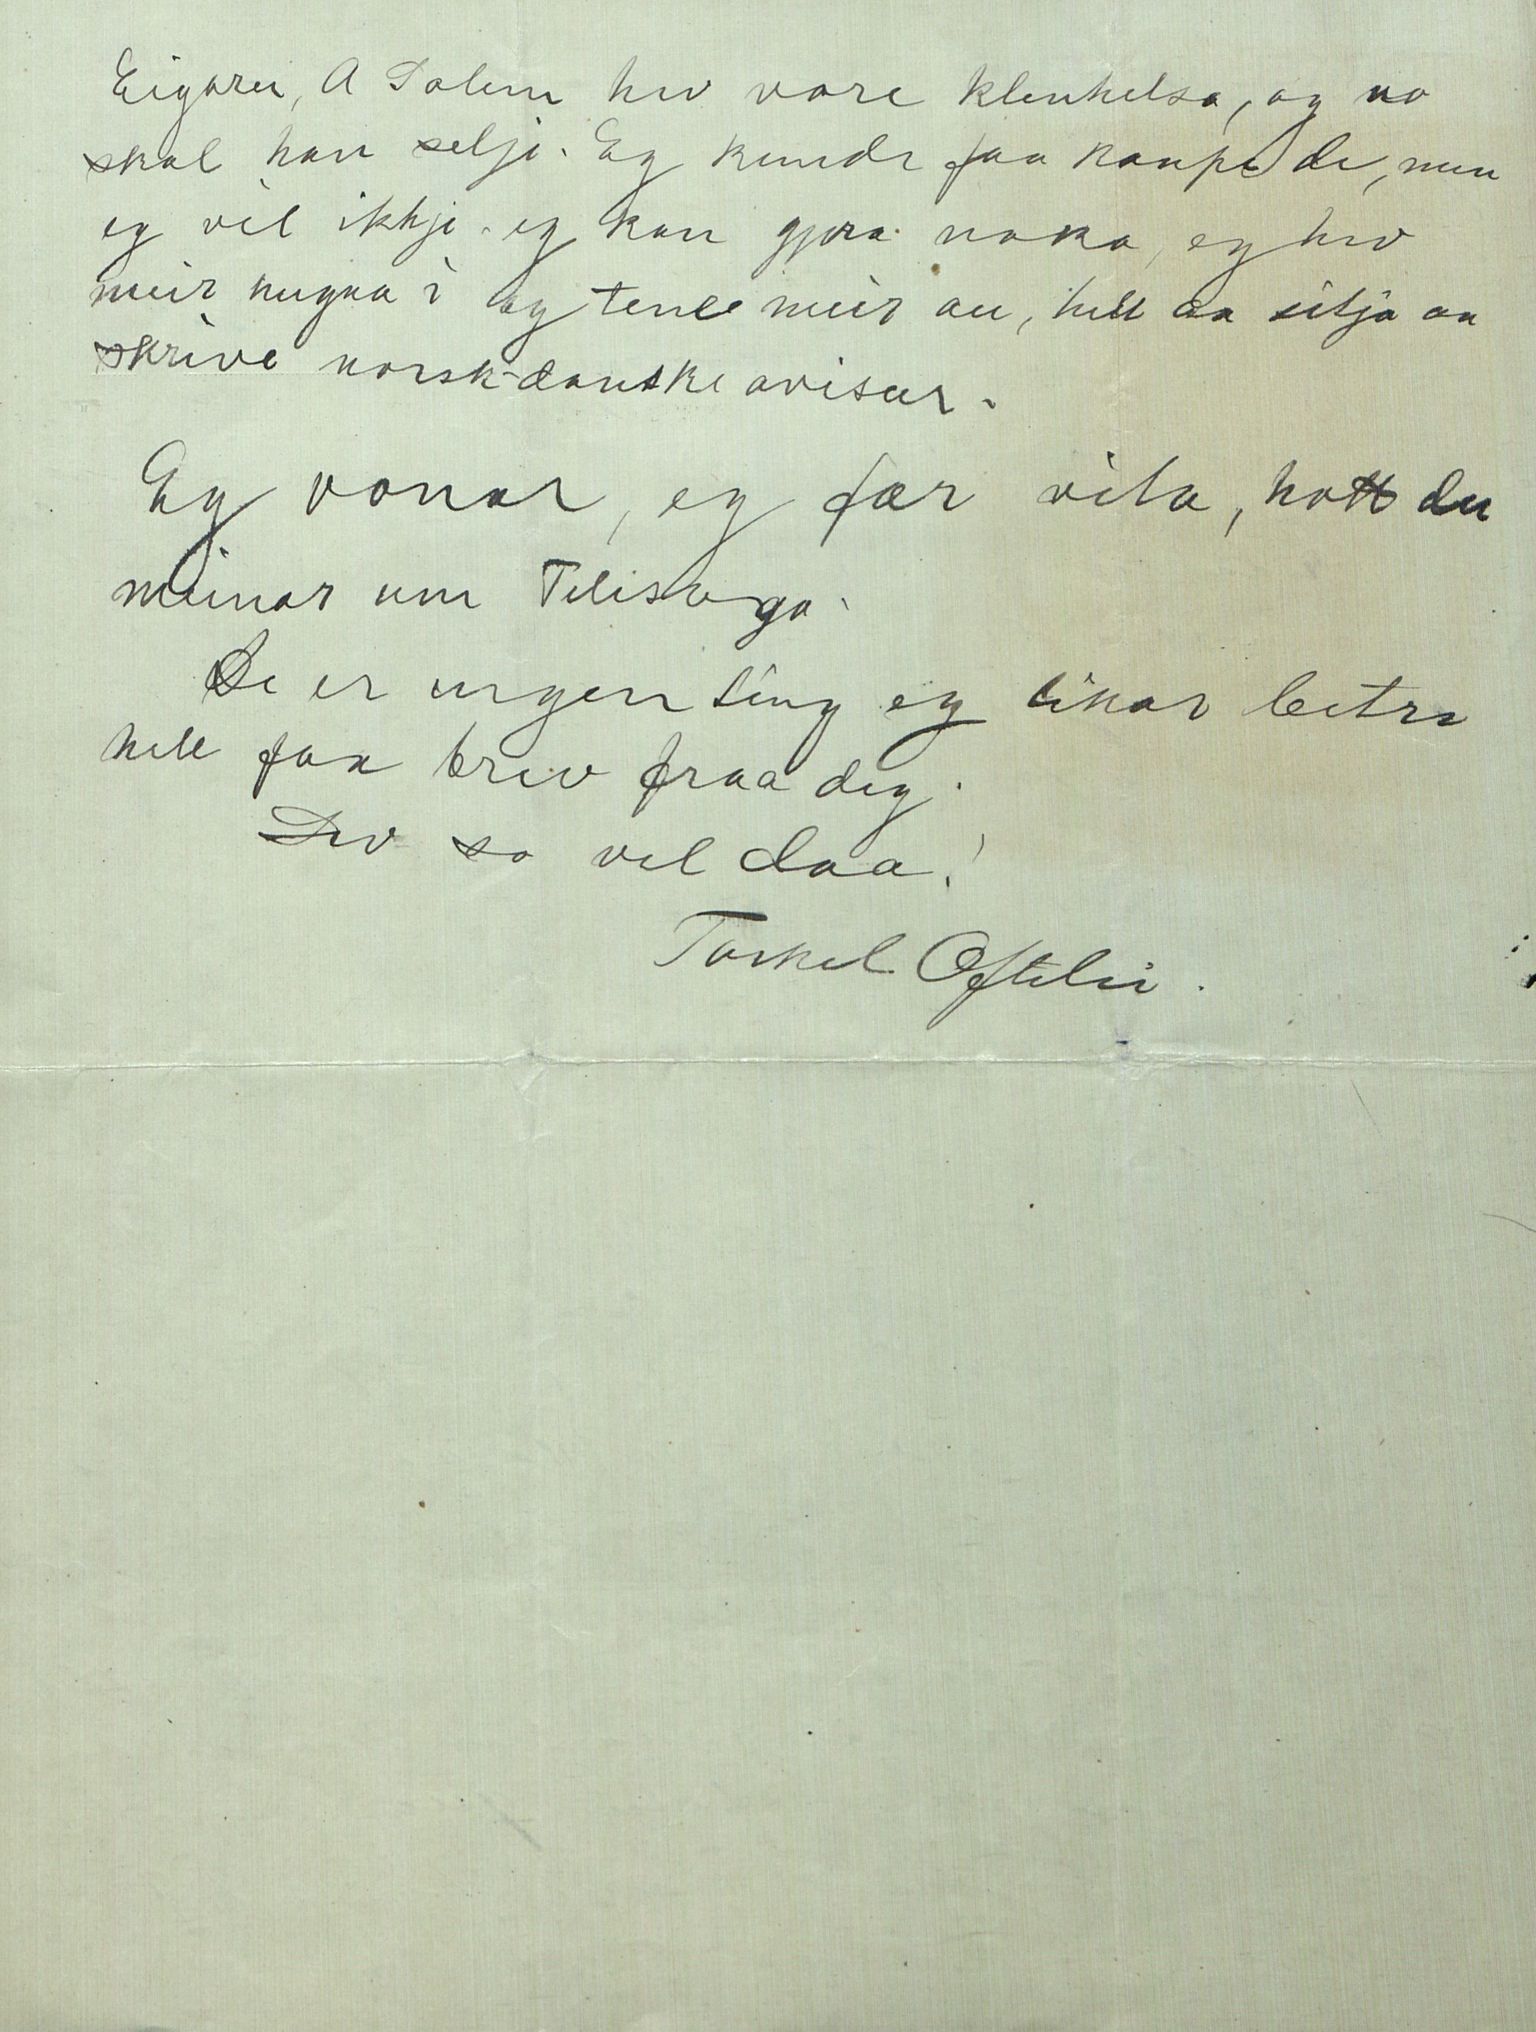 Eigaren, A Dalen hev vore klenhelsa, og no
skal han selja. Eg kunde faa kaupe de, men
eg vil ikkje. eg kan gjera noka, eg hev
meir hugna i og tene meir au, hell aa sitja aa
skrive norsk-danske avisur.
Eg vonar, eg fær vita, hott du
meinar um Telesoga.
De er ingen ting eg likar betre
hell faa brev fraa deg.
Lev so vel daa!
Torkel Oftelie.